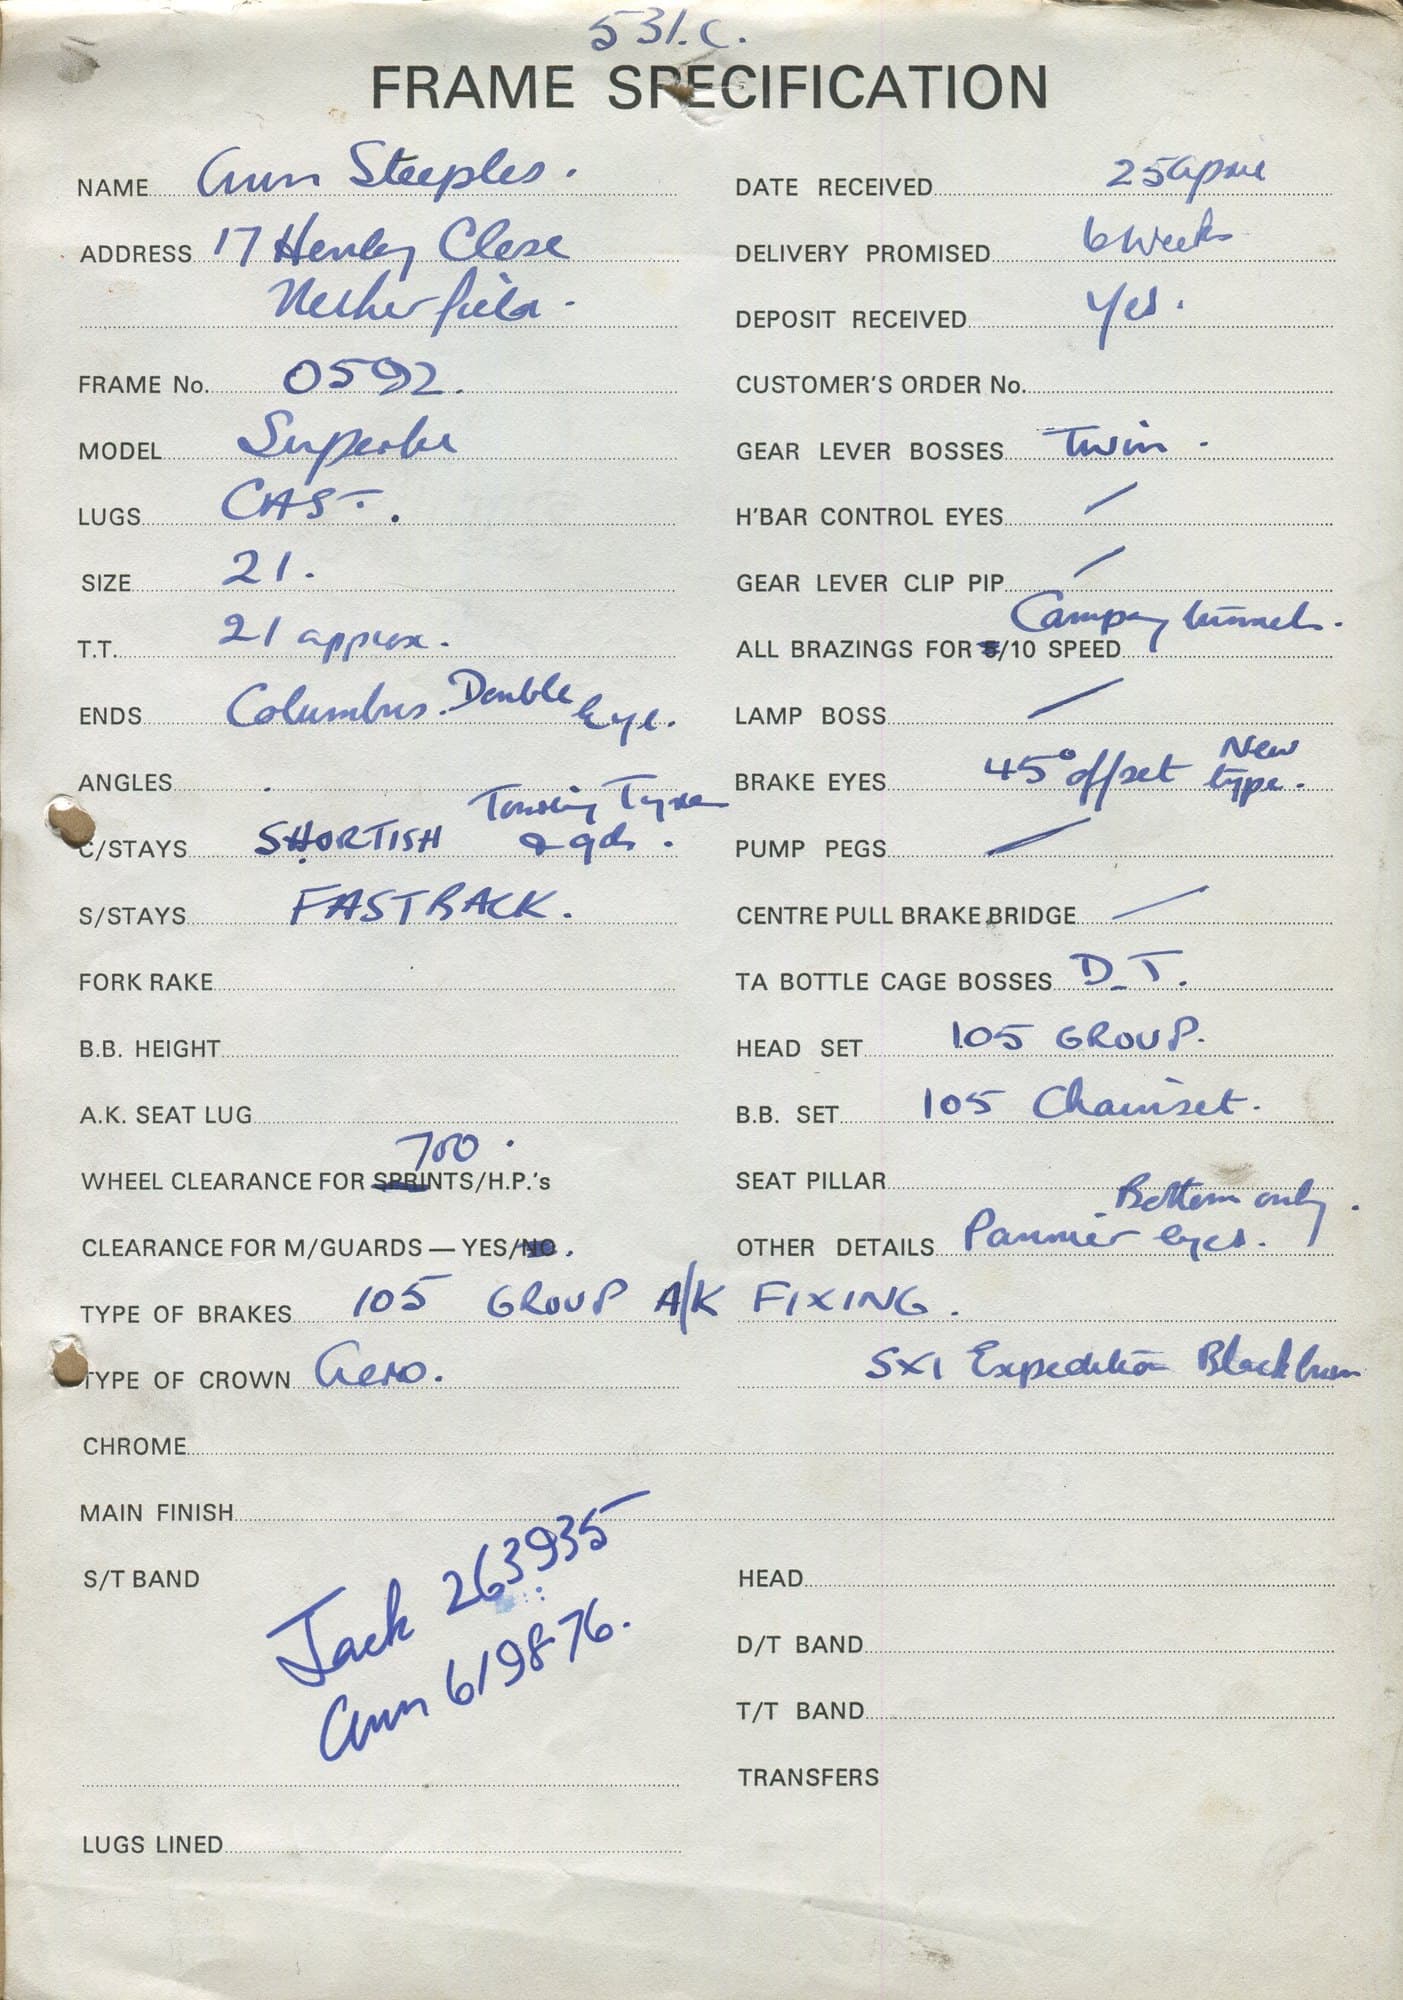 531.C.
FRAME SPECIFICATION
NAME Ann Steeples.
ADDRESS 17 Henley Close
Netherfield.
FRAME No. 0592.
MODEL Superbe
LUGS CAST.
SIZE 21.
T.T. 21 approx.
ENDS Columbus. Double Eye.
ANGLES
C/STAYS SHORTISH Touring Tyres & gds.
S/STAYS FASTBACK.
FORK RAKE
B.B. HEIGHT
A.K. SEAT LUG
700.
WHEEL CLEARANCE FOR SPRINTS/H.P.'s
CLEARANCE FOR M/GUARDS — YES/NO.
TYPE OF BRAKES 105 GROUP A/K FIXING.
TYPE OF CROWN Aero.
CHROME
MAIN FINISH
S/T BAND
Jack 263935
Ann 619876.
LUGS LINED
DATE RECEIVED 25 April
DELIVERY PROMISED 6 Weeks
DEPOSIT RECEIVED Yes.
CUSTOMER'S ORDER No.
GEAR LEVER BOSSES Twin.
H'BAR CONTROL EYES /
GEAR LEVER CLIP PIP /
Campag tunnels.
ALL BRAZINGS FOR 5/10 SPEED
LAMP BOSS /
BRAKE EYES 45° offset New type.
PUMP PEGS /
CENTRE PULL BRAKE BRIDGE /
TA BOTTLE CAGE BOSSES D.T.
HEAD SET 105 GROUP.
B.B. SET 105 Chainset.
SEAT PILLAR
Bottom only.
OTHER DETAILS Pannier eyes.
SX1 Expedition Blackburn
HEAD
D/T BAND
T/T BAND
TRANSFERS